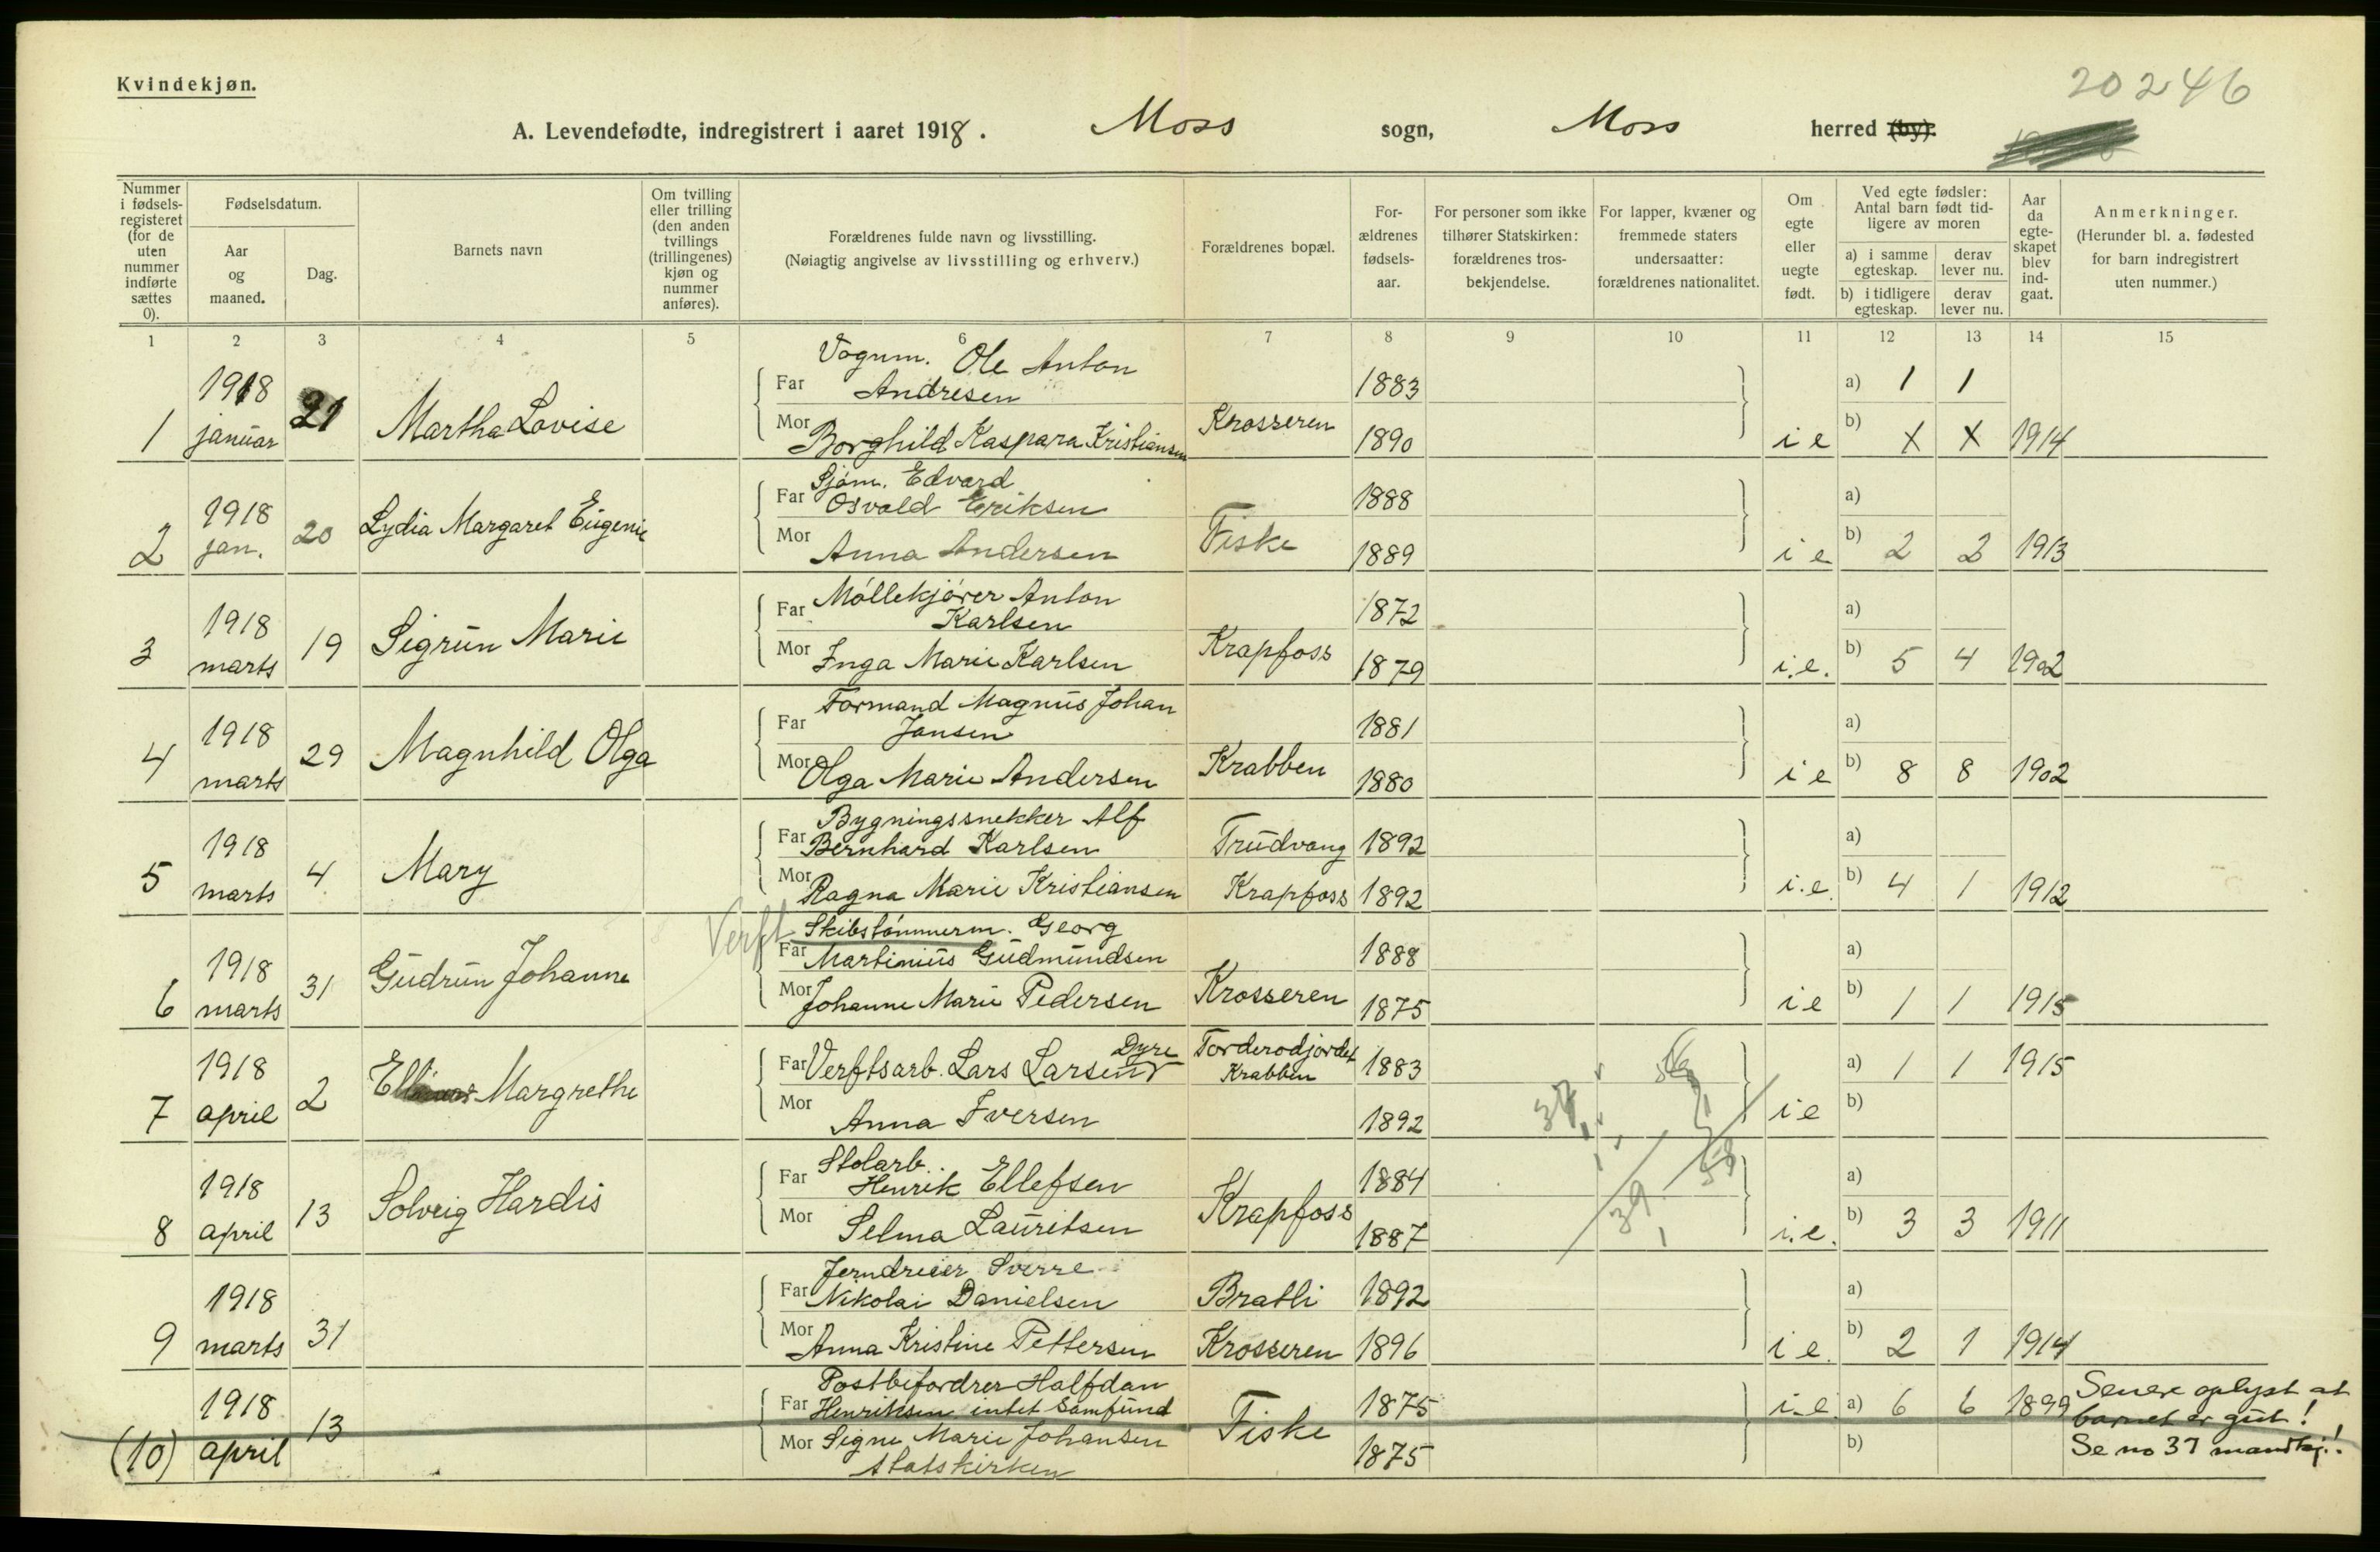 Kvindekjøn.
20246
A. Levendefødte, indregistrert i aaret 1918. Moss sogn, Moss herred (by).
Nummer i fødsels-registeret (for de uten nummer indførte sættes 0).
Fødselsdatum.
Aar og maaned.
Dag.
Barnets navn
Om tvilling eller trilling (den anden tvillings (trillingenes) kjøn og nummer anføres).
Forældrenes fulde navn og livsstilling.
(Nøiagtig angivelse av livsstilling og erhverv.)
Forældrenes bopæl.
For-ældrenes fødsels-aar.
For personer som ikke tilhører Statskirken: forældrenes tros-bekjendelse.
For lapper, kvæner og fremmede staters undersaatter: forældrenes nationalitet.
Om egte eller uegte født.
Ved egte fødsler: Antal barn født tid-ligere av moren
a) i samme egteskap.
derav lever nu.
b) i tidligere egteskap.
derav lever nu.
Aar da egte-skapet blev ind-gaat.
Anmerkninger.
(Herunder bl. a. fødested for barn indregistrert uten nummer.)
1 2 3 4 5 6 7 8 9 10 11 12 13 14 15
Vognm. Ole Anton
1918 Far Andresen 1883 a) 1 1
1 januar 21 Martha Lovise Mor Borghild Kaspara Kristiansen Krosseren 1890 i e b) X X 1914
Sjøm. Edvard
1918 Far Osvald Eriksen 1888 a)
2 jan. 20 Lydia Margaret Eugenie Mor Anna Andersen Fiske 1889 i e b) 2 2 1913
Møllekjører Anton
1918 Far Karlsen 1872 a)
3 marts 19 Sigrun Marie Mor Inga Marie Karlsen Krapfoss 1879 i.e. b) 5 4 1902
Formand Magnus Johan
1918 Far Jansen 1881 a)
4 marts 29 Magnhild Olga Mor Olga Marie Andersen Krabben 1880 i e b) 8 8 1902
Bygningssnekker Alf
1918 Far Bernhard Karlsen Trudvang 1892 a)
5 marts 4 Mary Mor Ragna Marie Kristiansen Krapfoss 1892 i.e. b) 4 1 1912
Verft Skibstømmerm. Georg
1918 Far Martinius Gudmundsen 1888 a)
6 marts 31 Gudrun Johanne Mor Johanne Marie Pedersen Krosseren 1875 i e b) 1 1 1915
Dyre Torderødjordet
1918 Far Verftsarb. Lars Larsen Krabben 1883 a) 1 1 1915
7 april 2 Margrethe Mor Anna Iversen 1892 i e b)
Stolarb.
1918 Far Henrik Ellefsen 1884 a)
8 april 13 Solveig Hardis Mor Selma Lauritsen Krapfoss 1887 i.e. b) 3 3 1911
39
Jerndreier Sverre
1918 Far Nikolai Danielsen Bratli 1892 a)
9 marts 31 Mor Anna Kristine Pettersen Krosseren 1896 i e. b) 2 1 1914
Postbefordrer Halfdan Senere oplyst at
1918 Far Henriksen intet Samfund 1875 i.e. a) 6 6 1899 barnet er gut!
(10) april 13 Mor Signe Marie Johansen Fiske 1875 b) Se no 37 mandkj.!
Statskirken